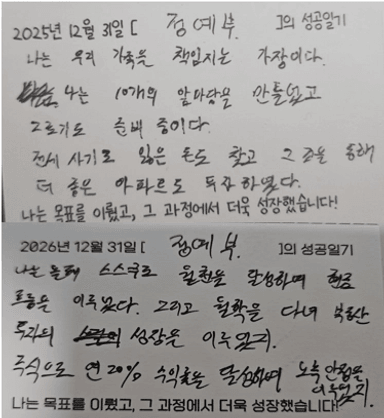 2025년 12월 31일 [ 정예부 ]의 성공일기
나는 우리 가족을 책임지는 가장이다.
나는 10개의 앞마당을 만들었고
2호기도 준비 중이다.
전세 사기로 잃은 돈도 찾고 그 돈을 통해
더 좋은 아파트도 취득하였다.
나는 목표를 이뤘고, 그 과정에서 더욱 성장했습니다!
2026년 12월 31일 [ 정예부 ]의 성공일기
나는 올해 스스로 월천을 달성하며 현금
흐름을 이루었다. 그리고 월학을 다녀 부동산
투자의 성장을 이루었지.
주식으로 연 20% 수익율을 달성하며 노후 안정을
이루었지.
나는 목표를 이뤘고, 그 과정에서 더욱 성장했습니다!